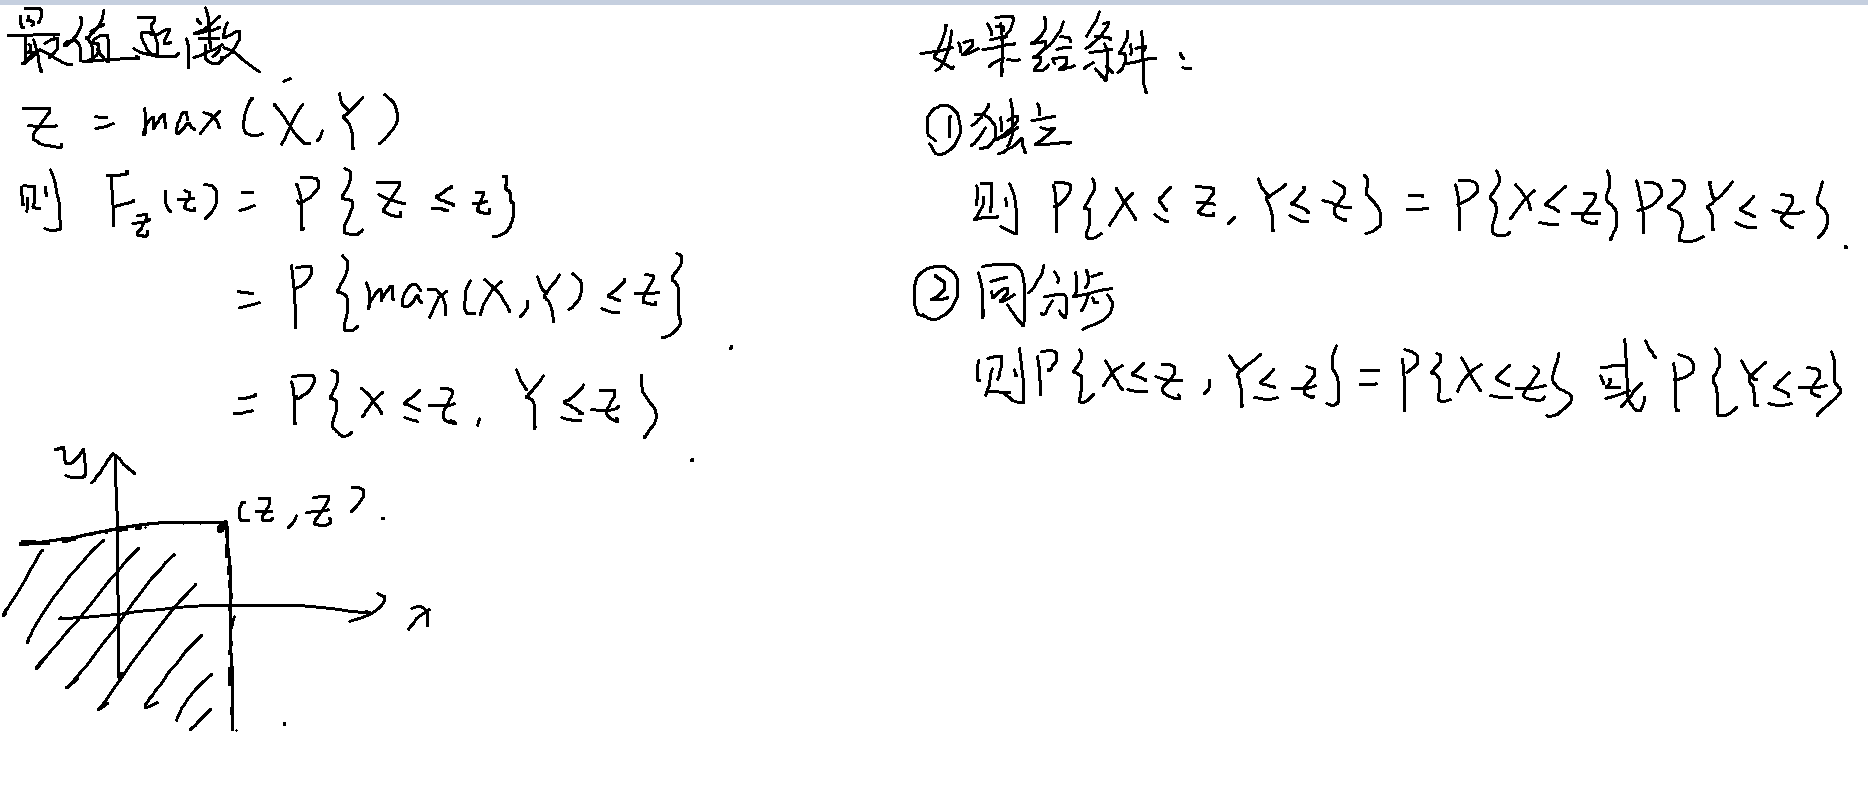 最值函数
Z = max(X,Y)
则 F_Z(z) = P{Z ≤ z}
= P{max(X,Y) ≤ z}
= P{X ≤ z, Y ≤ z}
y
(z,z)
x
如果给条件:
①独立
则 P{X ≤ z, Y ≤ z} = P{X ≤ z}P{Y ≤ z}
②同分步
则P{X ≤ z, Y ≤ z} = P{X ≤ z} 或 P{Y ≤ z}